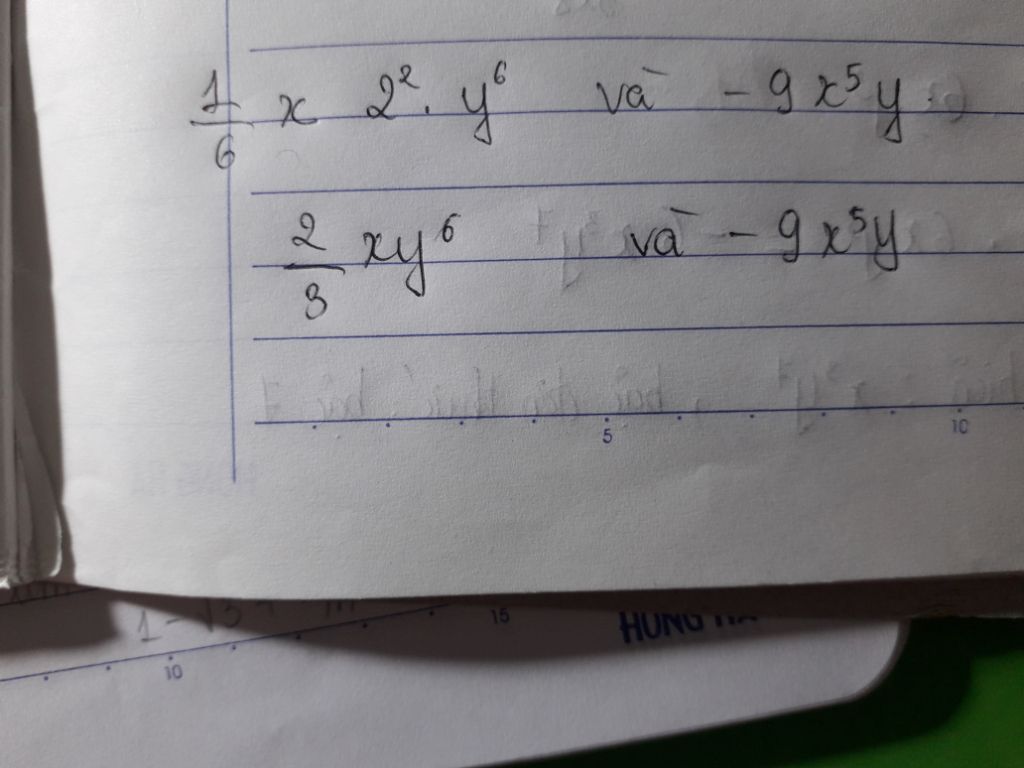 1/6 x 2². y⁶ và - 9 x⁵y
2/3 xy⁶ và - 9 x⁵y
5 10
15
10